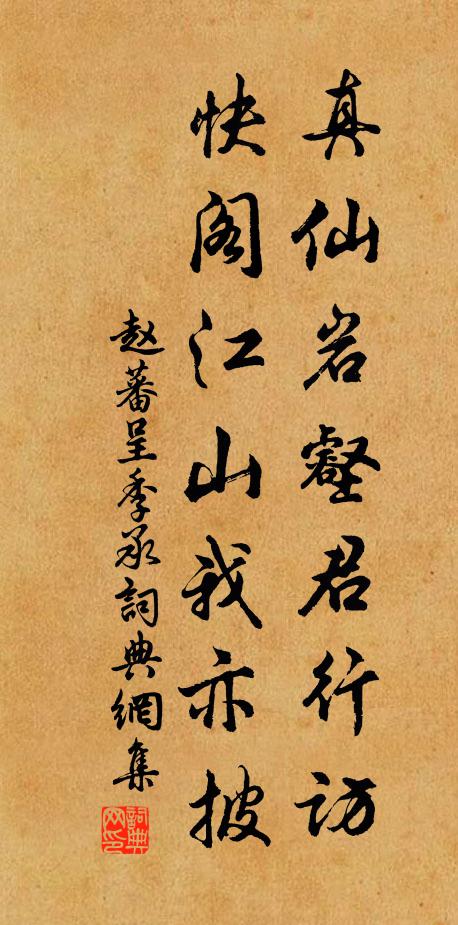 真仙岩壑君行访
快阁江山我亦披
赵蕃呈季承词典網集
詞典网印